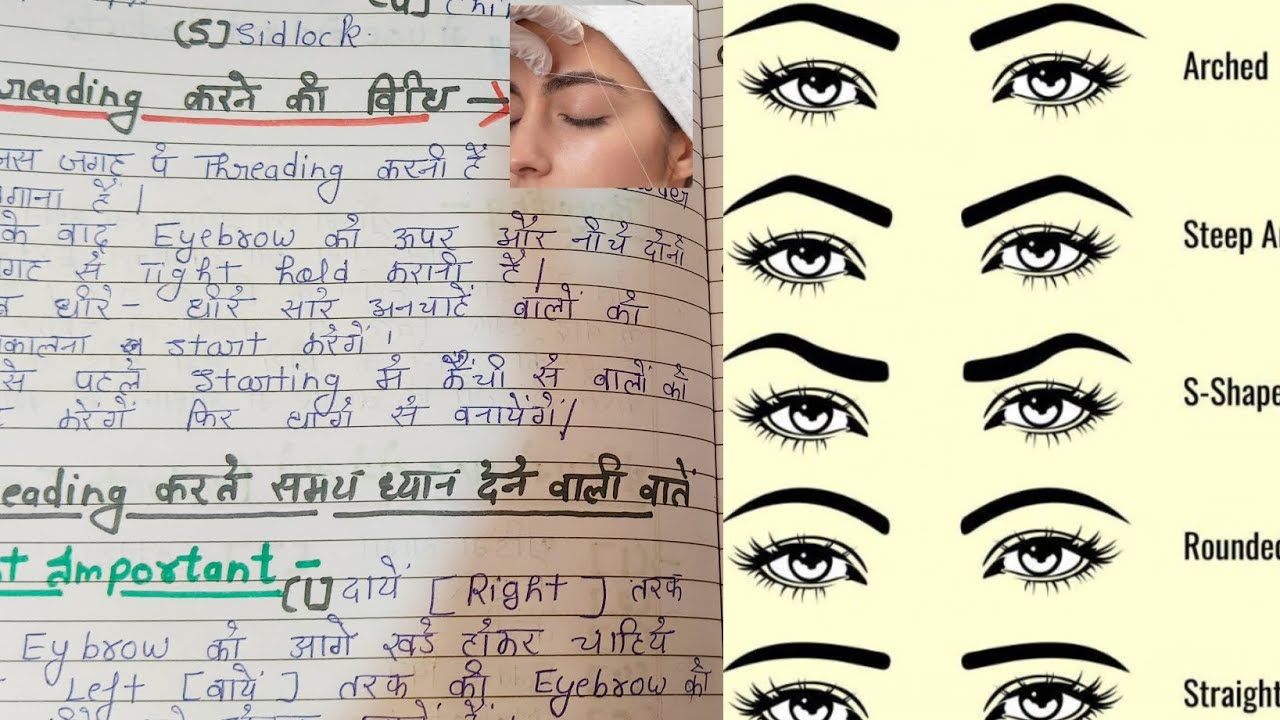 (5) Sidlock.
reading करने की विधि →
जगह पे Threading करनी है
गाना है।
के बाद Eyebrow को ऊपर और नीचे दोनों
गह से Tight hold करानी है।
धीरे - धीरे सारे अनचाहें बालों को
कालना start करेगें।
से पहले starting में कैंची से बालों को
करेगें फिर धागें से बनायेगें।
eading करते समय ध्यान देने वाली बातें
t Important -
(1) दायें [Right] तरफ
Eybrow को आगे खडे होकर चाहिये
Left [बायें] तरफ की Eyebrow को
Arched
Steep A
S-Shape
Rounde
Straight